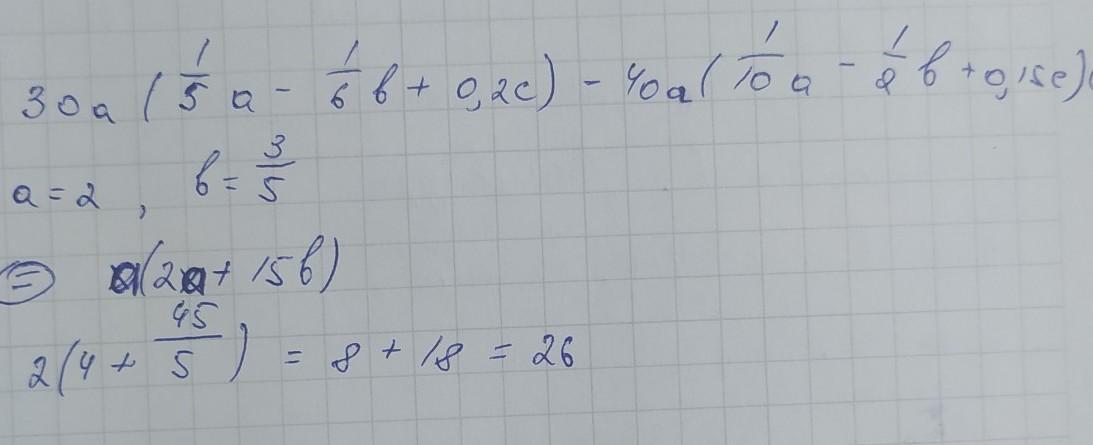 30a (1/5 a - 1/6 b + 0,2c) - 40a (1/10 a - 1/2 b + 0,15c)
a = 2 , b = 3/5
= a(2a + 15b)
2(4 + 45/5) = 8 + 18 = 26